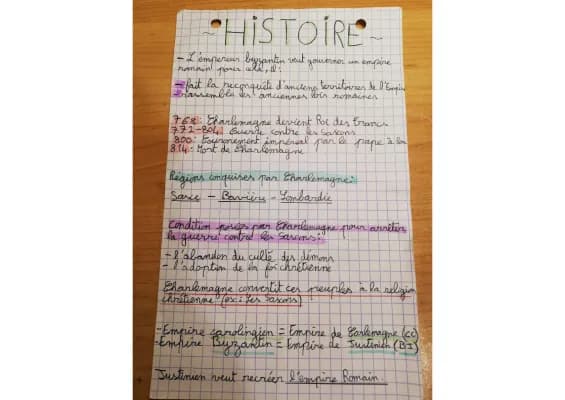 ~HISTOIRE~
- L'empereur byzantin veut gouverner un empire
romain pour cela, il :
- fait la reconquête d'anciens territoires de l'Empire
- rassemble les anciennes lois romaines
768: Charlemagne devient Roi des Francs
772-804: Guerre contre les Saxons
800: Couronnement impérial par le pape à
814: Mort de Charlemagne
Régions conquises par Charlemagne:
Saxe - Bavière - Lombardie
Condition posées par Charlemagne pour arrêter
la guerre contre les Saxons:
- l'abandon du culte des démons
- l'adoption de la foi chrétienne
Charlemagne convertit ces peuples à la religion
chrétienne (ex: Les Saxons)
- Empire carolingien = Empire de Carlemagne (CC)
- Empire Byzantin = Empire de Justinien (BI)
Justinien veut recréer l'empire Romain.